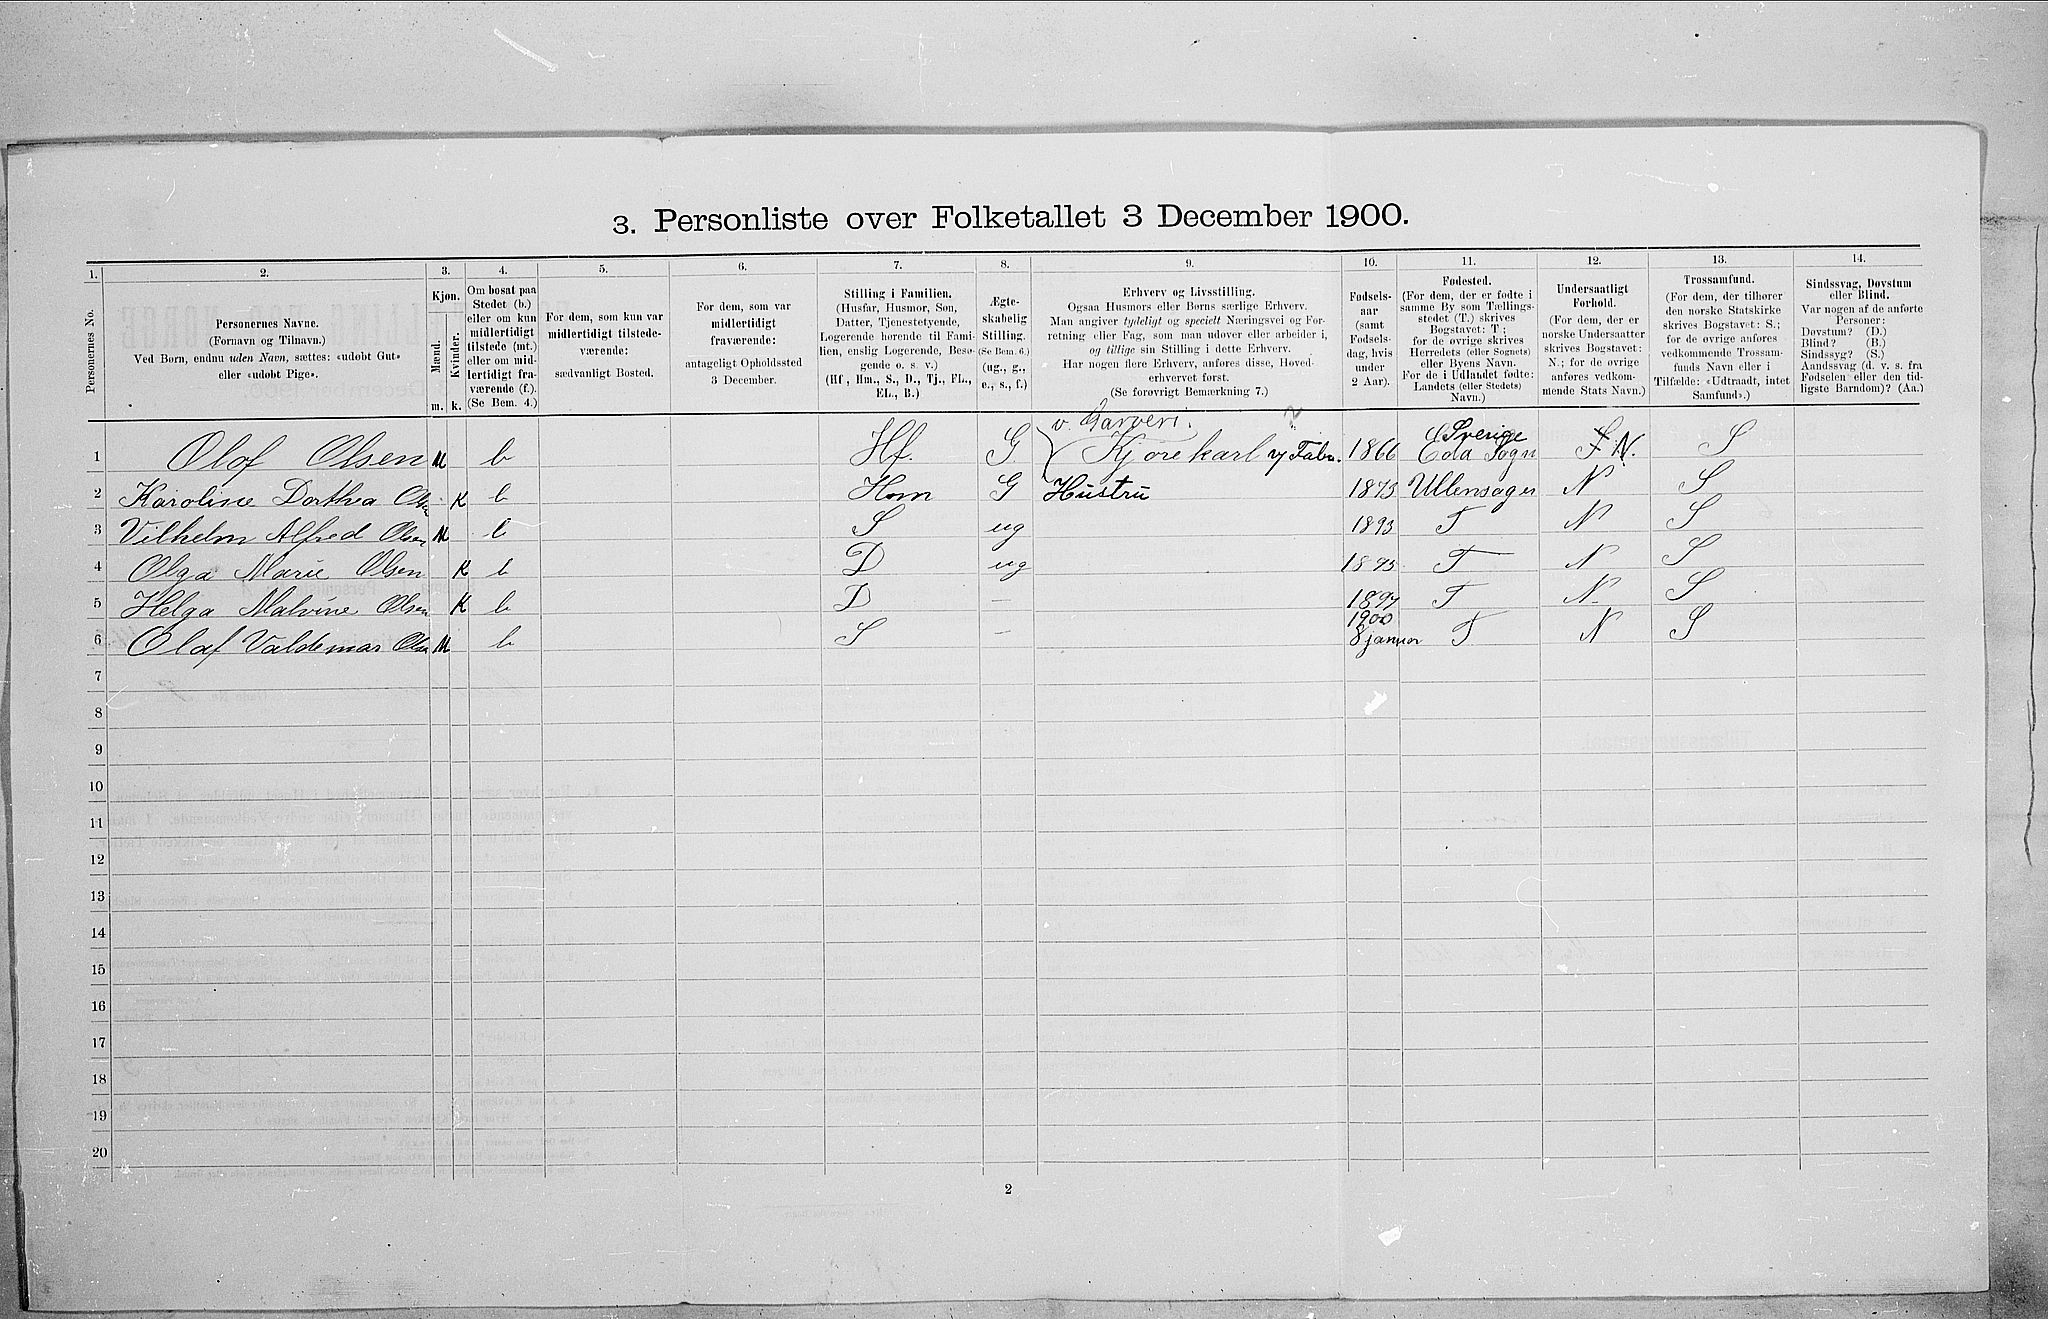 3. Personliste over Folketallet 3 December 1900.
1. 2. 3. 4. 5. 6. 7. 8. 9. 10. 11. 12. 13. 14.
Personernes No.
Personernes Navne.
(Fornavn og Tilnavn.)
Ved Børn, endnu uden Navn, sættes: «udøbt Gut»
eller «udøbt Pige».
Kjøn.
Mænd.
Kvinder.
m. k.
Om bosat paa
Stedet (b.)
eller om kun
midlertidigt
tilstede (mt.)
eller om mid-
lertidigt fra-
værende (f.).
(Se Bem. 4.)
For dem, som kun var
midlertidigt tilstede-
værende:
sædvanligt Bosted.
For dem, som var
midlertidigt
fraværende:
antageligt Opholdssted
3 December.
Stilling i Familien.
(Husfar, Husmor, Søn,
Datter, Tjenestetyende,
Logerende hørende til Fami-
lien, enslig Logerende, Besø-
gende o. s. v.)
(Hf., Hm., S., D., Tj., FL.,
EL., B.)
Ægte-
skabelig
Stilling.
(Se Bem. 6.)
(ug., g.,
e., s., f.)
Erhverv og Livsstilling.
Ogsaa Husmors eller Børns særlige Erhverv.
Man angiver tydeligt og specielt Næringsvei og For-
retning eller Fag, som man udøver eller arbeider i,
og tillige sin Stilling i dette Erhverv.
Har nogen flere Erhverv, anføres disse, Hoved-
erhvervet først.
(Se forøvrigt Bemærkning 7.)
Fødsels-
aar
(samt
Fødsels-
dag, hvis
under
2 Aar).
Fødested.
(For dem, der er fødte i
samme By som Tællings-
stedet (T.) skrives
Bogstavet: T.;
for de øvrige skrives
Herredets (eller Sognets)
eller Byens Navn.
For de i Udlandet fødte:
Landets (eller Stedets)
Navn.)
Undersaatligt
Forhold.
(For dem, der er
norske Undersaatter
skrives Bogstavet:
N.; for de øvrige
anføres vedkom-
mende Stats Navn.)
Trossamfund.
(For dem, der tilhører
den norske Statskirke
skrives Bogstavet: S.;
for de øvrige anføres
vedkommende Trossam-
funds Navn eller i
Tilfælde: «Udtraadt, intet
Samfund».)
Sindssvag, Døvstum
eller Blind.
Var nogen af de anførte
Personer:
Døvstum? (D.)
Blind? (B.)
Sindssyg? (S.)
Aandssvag (d. v. s. fra
Fødselen eller den tid-
ligste Barndom)? (Aa.)
v. Garveri.
Sverige
1 Olof Olsen M b Hf. G Kjørekarl v Fabr. 1866 Eda Sogn N. S
2 Karoline Dorthea Olsen K b Hom G Hustru 1873 Ullensager N S
3 Vilhelm Alfred Olsen M b S ug 1893 T N S
4 Olga Marie Olsen K b D ug 1895 T N S
5 Helga Malvine Olsen K b D — 1897 T N S
1900
6 Olaf Valdemar Olsen M b S — 8 januar T N S
7
8
9
10
11
12
13
14
15
16
17
18
19
20
2